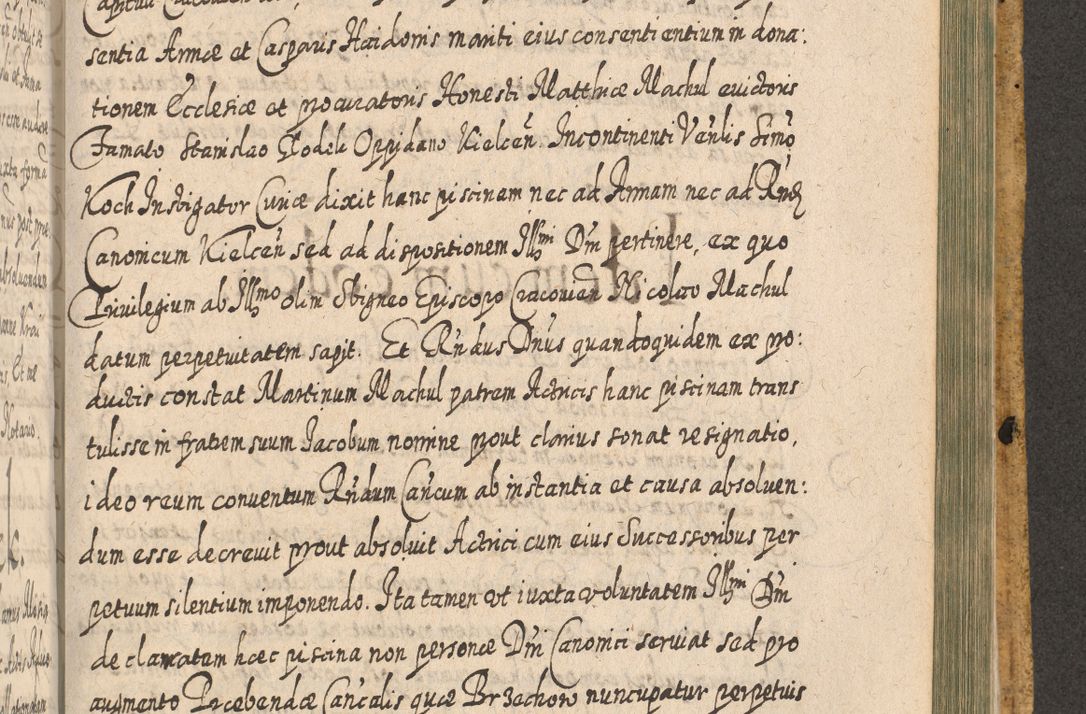 sentia Annæ et Casparis Haidonis mariti eius consentientium in dona:
tionem Ecclesiæ et procuratoris Honesti Matthiæ Machul evictoris
Famato Stanislao Godek Oppidano Kielceñ. Incontinenti Veñlis Simō
Koch Instigator Curiæ dixit hanc piscinam nec ad Annam nec ad Rñdū
Canonicum Kielceñ sed ad dispositionem Illmi Dñi pertinere, ex quo
Privilegium ab Illmo olim Sbigneo Episcopo Cracovieñ Nicolao Machul
datum perpetuitatem sapit. Et Rñdus Dñus quandoquidem ex pro:
ductis constat Martinum Machul patrem Actricis hanc piscinam trans
tulisse in fratrem suum Jacobum nomine prout clarius sonat resignatio,
ideo reum conventum Rñdum Cañcum ab instantia et causa absolven:
dum esse decrevit prout absolvit Actrici cum eius Successoribus per
petuum silentium imponendo. Ita tamen vt iuxta voluntatem Illmi Dñi
declaratam hæc piscina non personæ Dñi Canonici serviat sed pro
augmento Præbendæ Cañcalis quæ Brzachow nuncupatur perpetuis